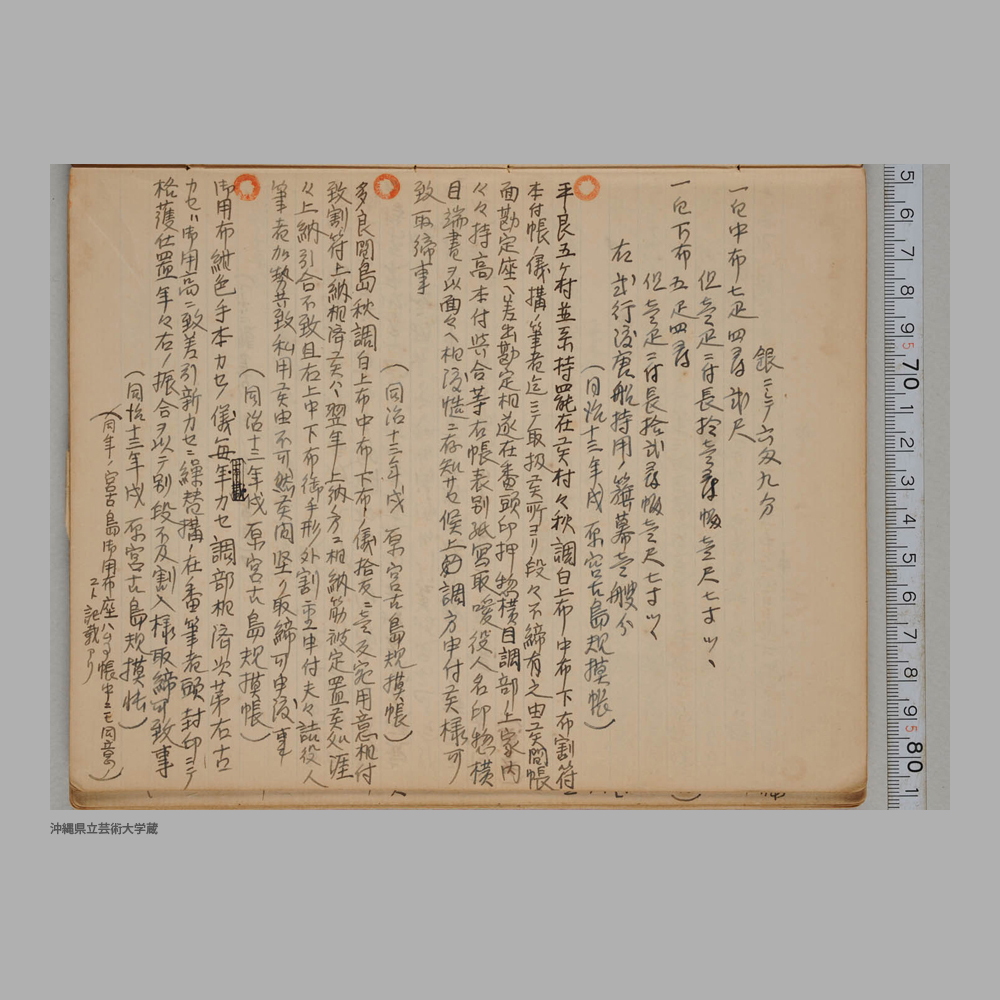 銀ニテ六匁九分
一白中布七疋四尋弐尺
但壱疋ニ付長拾壱尋幅壱尺七寸ツヽ
一白下布五疋四尋
但壱疋ニ付長拾弐尋幅壱尺七寸ツヽ
右弐行渡唐船持用ノ籏幕壱艘分
(同治十三年戌原宮古島規摸帳)
平良五ケ村並系持罷在候村々秋調白上布中布下布割符
本付帳ノ儀構ノ筆者迄ニテ取扱候所ヨリ段々不締有之由候間帳
面勘定座ヘ差出勘定相遂在番頭印押惣横目調部上家内
々々持高本付紙合等右帳表別紙写取噯役人名印惣横
目端書ヲ以面々ヘ相渡慥ニ存知サセ候上調方申付候様可
致取締事
(同治十三年戌原宮古島規摸帳)
多良間島秋調白上布中布下布ノ儀拾反ニ壱反宛用意相付
致割符上納相済候ハヽ翌年上納ノ方ニ相納筋被定置候処涯
々上納引合不致且右上中下布御手形外割重申付夫々詰役人
筆者加勢共致私用候由不可然候間堅ク取締可申渡事
(同治十三年戌原宮古島規摸帳)
御用布紺色手本カセノ儀毎年カセ調部相済次第右古
カセハ御用高ニ致差引新カセニ繰替構ノ在番筆者頭封印ニテ
格護仕置年々右ノ振合ヲ以テ別段不及割入様取締可致事
(同治十三年戌原宮古島規摸帳)
(同年ノ宮古島御用布座公事帳中ニモ同意ノ
コト記載アリ)
5 6 7 8 95 70 1 2 3 4 5 6 7 8 95 80 1
沖縄県立芸術大学蔵